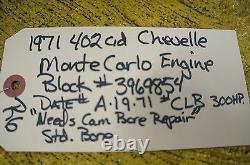 1971 402cid Chevelle
Monte Carlo Engine
Block # 3969854
Date# A·19·71 #CLB 300HP
"Needs Cam Bore Repair"
Std. Bore